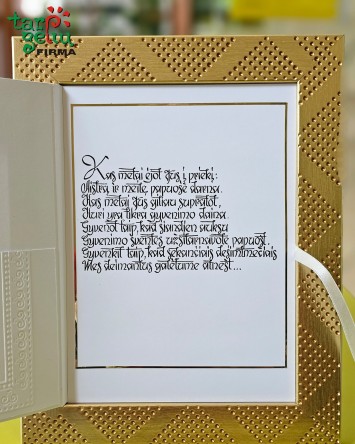 tarp gėlių
FIRMA
Kas metai ėjot Jūs į priekį:
Aistrą ir meilę papuošė darna.
Kas metai Jūs giliau supratot,
Kuri yra tikra gyvenimo daina.
Gyvenot taip, kad šiandien auksu
Gyvenimo šventės užsitarnavote papuošt.
Gyvenkit taip, kad sekančiais dešimtmečiais
Mes deimantus galėtume atnešt...